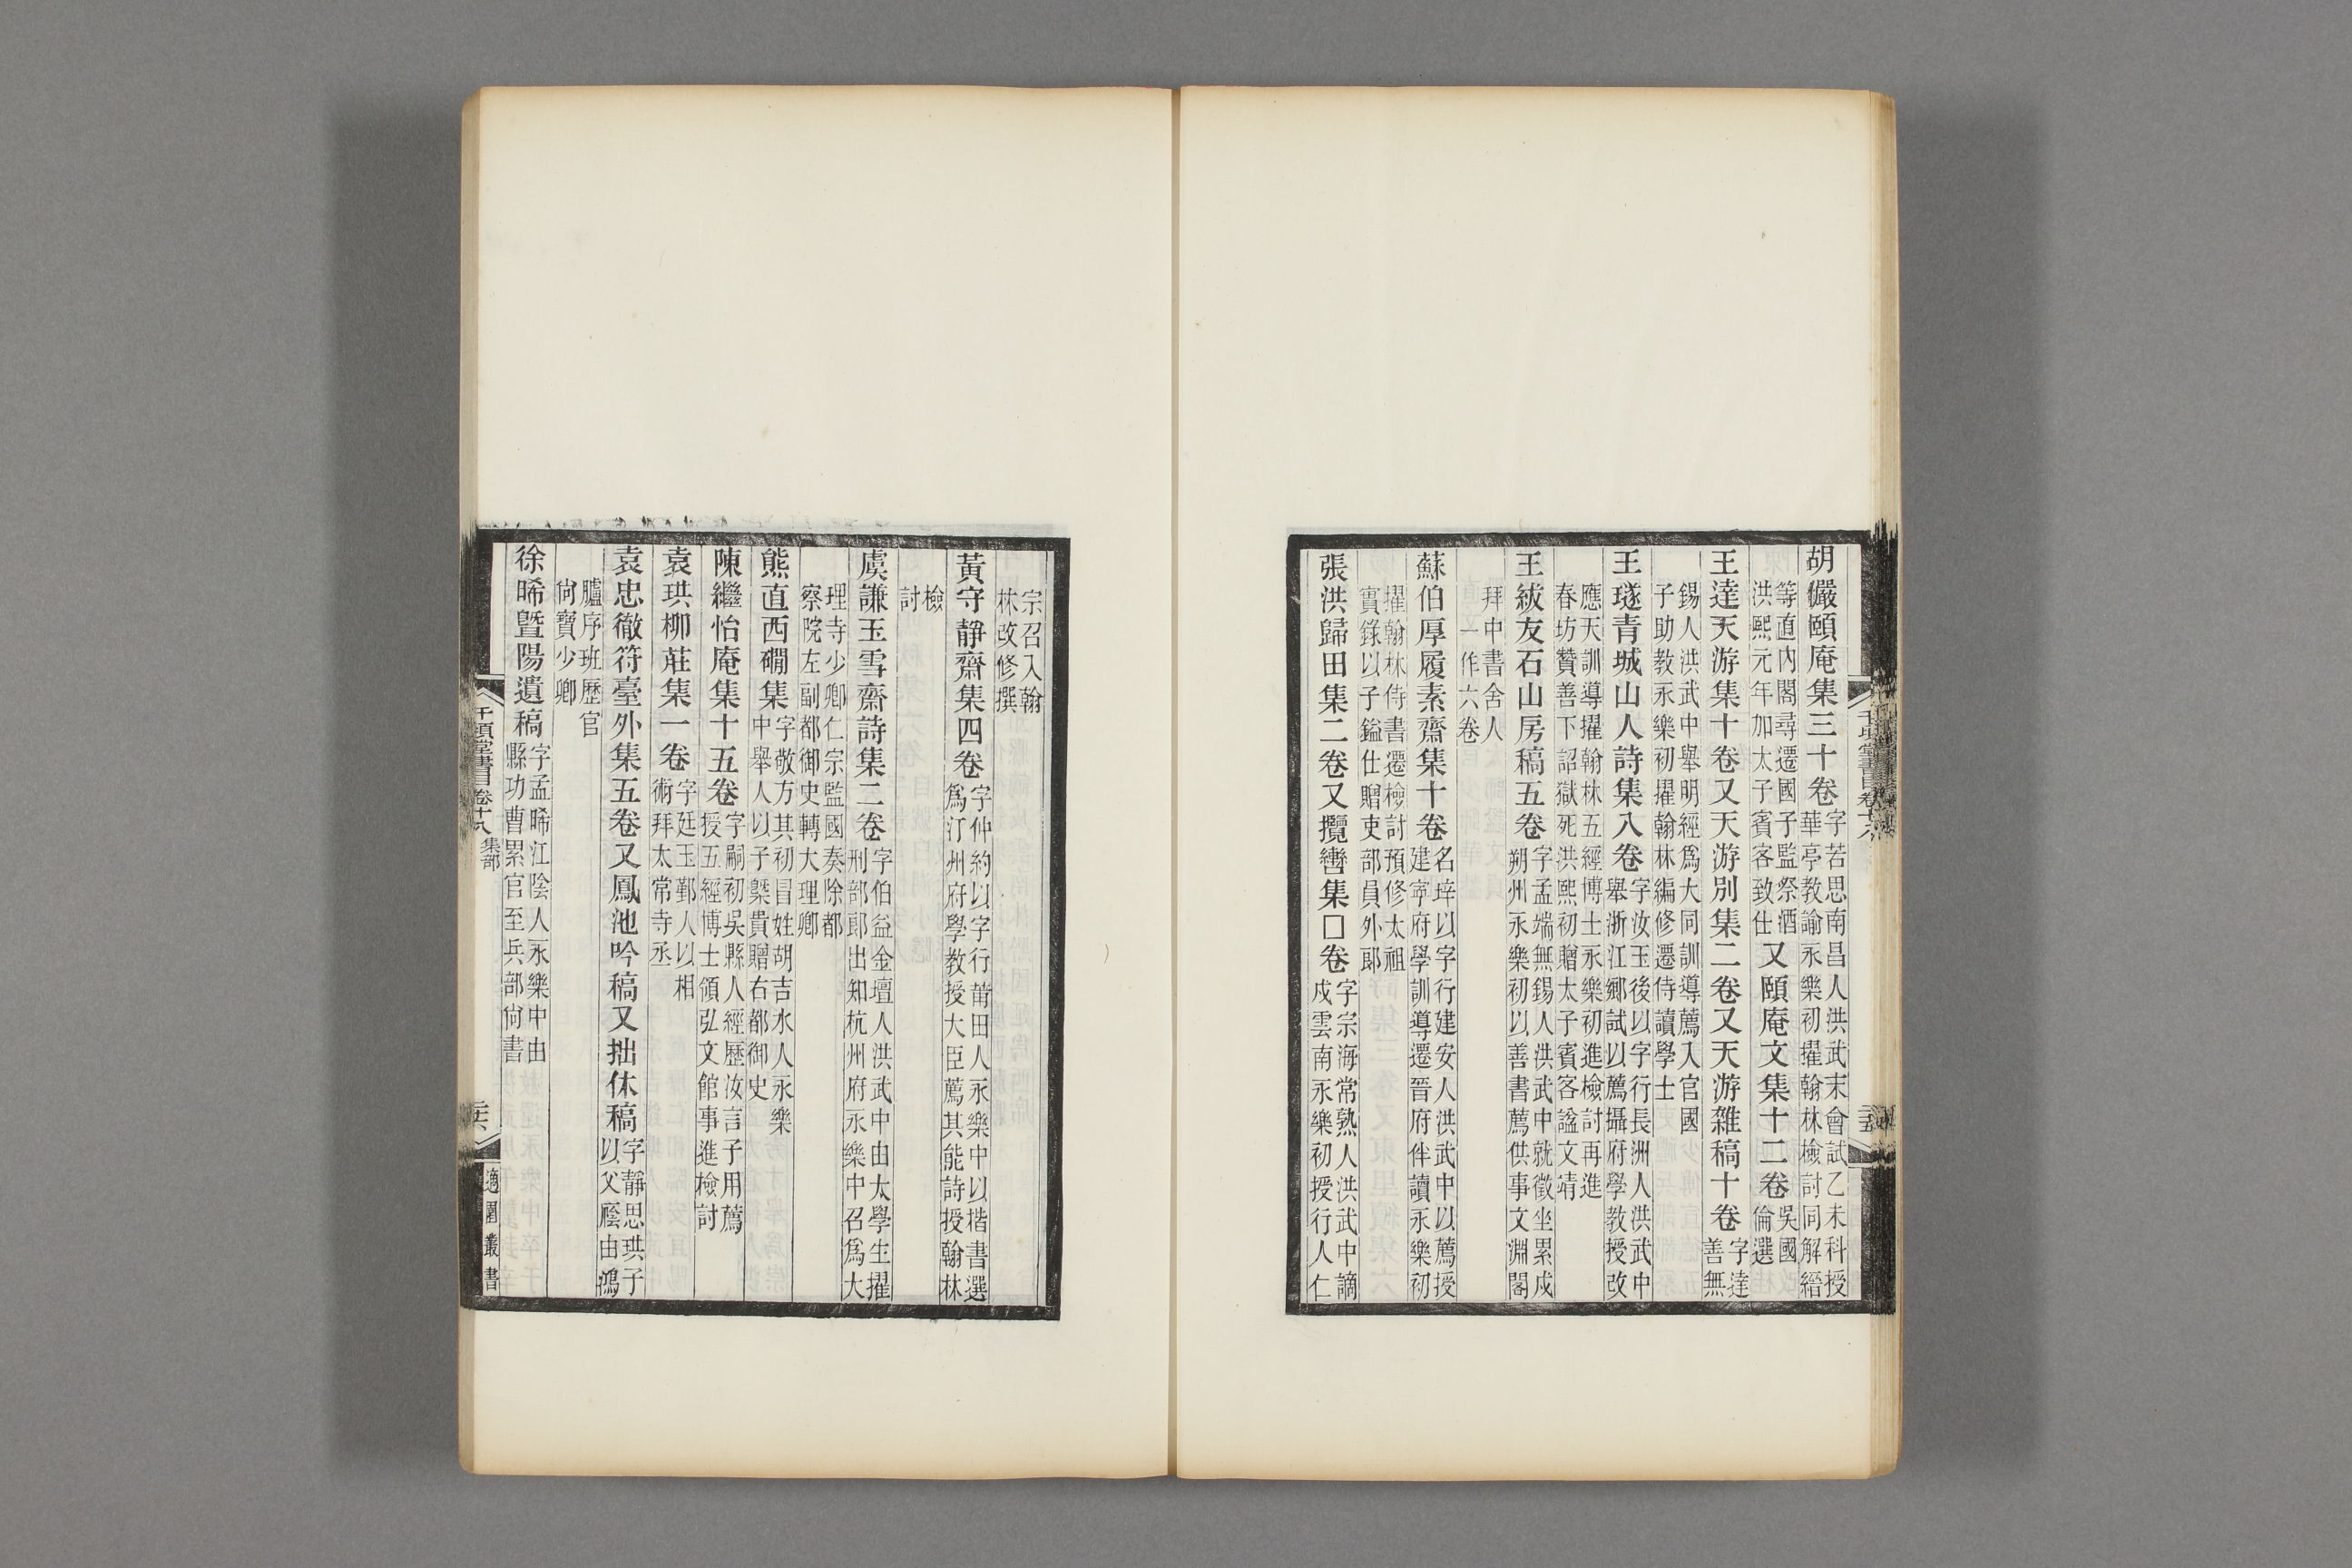 胡儼頤庵集三十卷字若思南昌人洪武末會試乙未科授華亭教諭永樂初擢翰林檢討同解縉
等直內閣尋遷國子監祭酒洪熙元年加太子賓客致仕又頤庵文集十二卷吳國倫選
王達天游集十卷又天游別集二卷又天游雜稿十卷字達善無
錫人洪武中舉明經爲大同訓導薦入官國子助教永樂初擢翰林編修遷侍讀學士
王璲青城山人詩集八卷字汝玉後以字行長洲人洪武中舉浙江鄉試以薦攝府學教授改
應天訓導擢翰林五經博士永樂初進檢討再進春坊贊善下詔獄死洪熙初贈太子賓客謚文靖
王紱友石山房稿五卷字孟端無錫人洪武中就徵坐累戍朔州永樂初以善書薦供事文淵閣
拜中書舍人一作六卷
蘇伯厚履素齋集十卷名垶以字行建安人洪武中以薦授建寧府學訓導遷晉府伴讀永樂初
擢翰林侍書遷檢討預修太祖實錄以子鎰仕贈吏部員外郎
張洪歸田集二卷又攬轡集□卷字宗海常熟人洪武中謫戍雲南永樂初授行人仁
宗召入翰林改修撰
黃守靜齋集四卷字仲約以字行莆田人永樂中以楷書選爲汀州府學教授大臣薦其能詩授翰林
檢討
虞謙玉雪齋詩集二卷字伯益金壇人洪武中由太學生擢刑部郎出知杭州府永樂中召爲大
理寺少卿仁宗監國奏除都察院左副都御史轉大理卿
熊直西磵集字敬方其初冒姓胡吉水人永樂中舉人以子槩貴贈右都御史
陳繼怡庵集十五卷字嗣初吳縣人經歷汝言子用薦授五經博士領弘文館事進檢討
袁珙柳莊集一卷字廷玉鄞人以相術拜太常寺丞
袁忠徹符臺外集五卷又鳳池吟稿又拙休稿字靜思珙子以父廕由鴻
臚序班歷官尙寶少卿
徐晞曁陽遺稿字孟晞江陰人永樂中由縣功曹累官至兵部尙書
千頃堂書目卷十八 集部
二十六
適園叢書